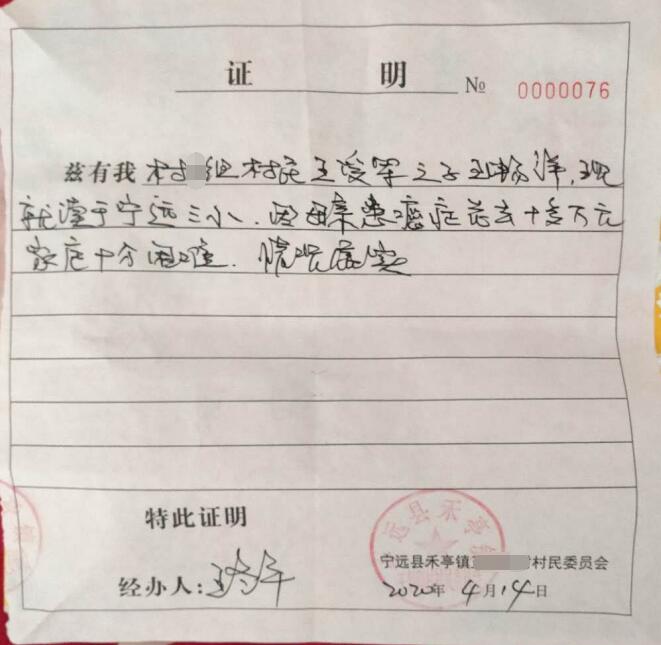 证 明 № 0000076
兹有我 村 组村民王爱军之子王畅洋,现
就读于宁远三小.因母亲患癌症花去十多万元
家庭十分困难.情况属实
特此证明
远县禾亭镇
宁远县禾亭镇 村民委员会
经办人:
2020年 4月14日